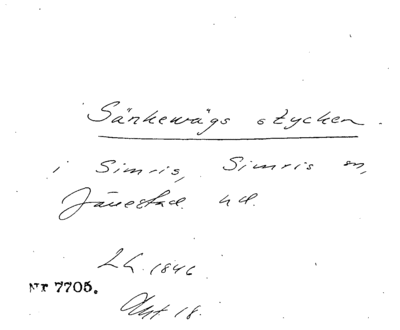 Sänkewägs stycken.
i Simris, Simris sn,
Järrestad. hd.
L.L. 1846
Nr 7705.
Akt 18.